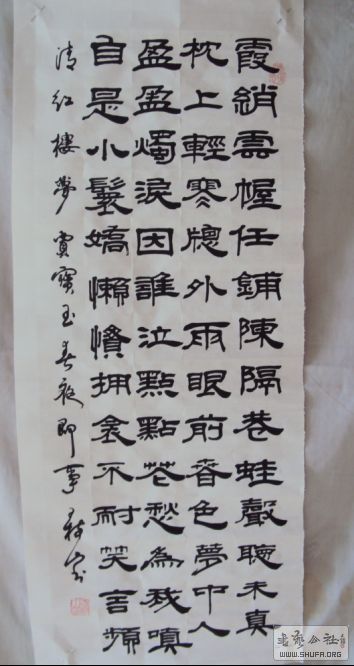 霞綃雲幄任鋪陳隔巷蛙聲聽未真
枕上輕寒牕外雨眼前春色夢中人
盈盈燭淚因誰泣點點花愁為我嗔
自是小鬟嬌懶慣拥衾不耐笑言頻
清紅樓夢賈寶玉春夜即事
書藝公社
WWW.SHUFA.ORG